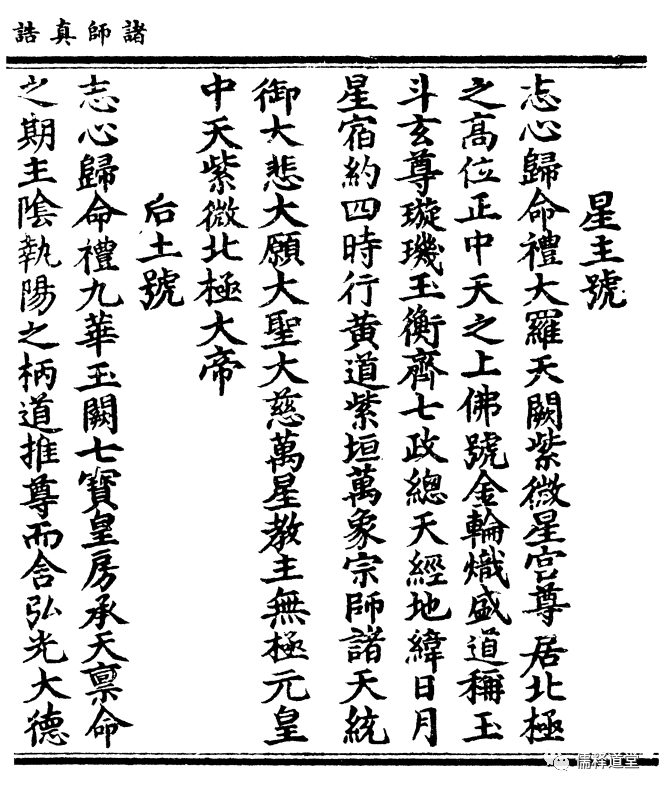 諸師真誥
星主號
志心歸命禮大羅天闕紫微星宮尊居北極
之高位正中天之上佛號金輪熾盛道稱玉
斗玄尊璇璣玉衡齊七政總天經地緯日月
星宿約四時行黃道紫垣萬象宗師諸天統
御大悲大願大聖大慈萬星教主無極元皇
中天紫微北極大帝
后土號
志心歸命禮九華玉闕七寶皇房承天禀命
之期主陰執陽之柄道推尊而含弘光大德
儒释道堂